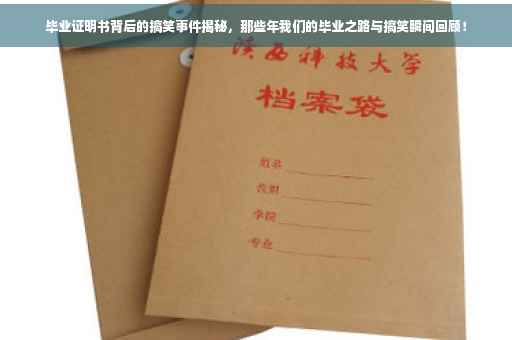 毕业证明书背后的搞笑事件揭秘，那些年我们的毕业之路与搞笑瞬间回顾！
陕西科技大学
档案袋
姓名
学院
专业